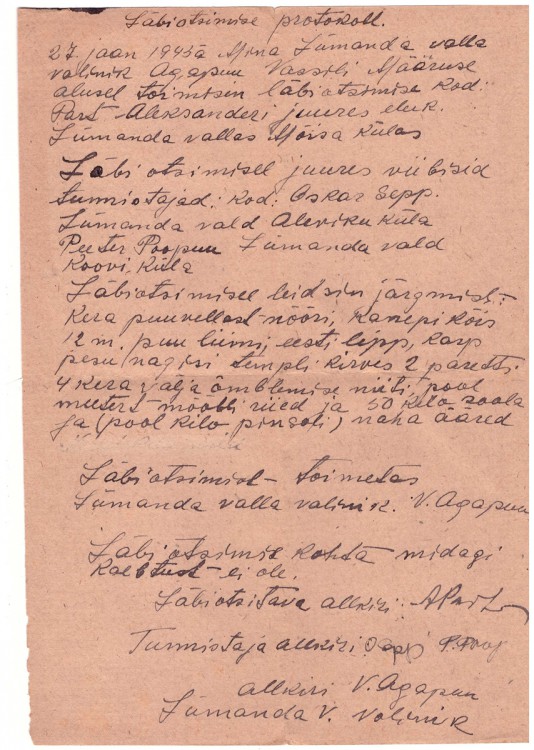 Läbiotsimise protokoll.
27. jaan 1945a Mina Lümanda valla
volinik Agapuu Vassili Määruse
alusel toimisin läbiotsimise Kod:
Part Aleksanderi juures eluk.
Lümanda vallas Mõisa külas
Läbiotsimisel juures viibisid
tunnistajad: Kod: Oskar Sepp.
Lümanda vald Aleviku küla
Peeter Poopuu Lümanda vald
Koovi Küla
Läbiotsimisel leidsin järgmist:
Kera puuvellast nööri, kanepi köis
12 m. puu liimi, eesti lipp, karp
pesu nagisi templi kirves 2
4 kera välja õmblemise niiti, pool
meetert mööbli riied ja 50 kilo soola
ja (pool kilo pinsoli) naha ääred
Läbiotsimist toimetas
Lümanda valla volinik. V. Agapuu
Läbiotsimise kohta midagi
Kaebtust ei ole.
Läbiotsitava allkiri: APart
Tunnistaja allkiri Sepp P. Poop
allkiri V. Agapuu
Lümanda V. Volinik